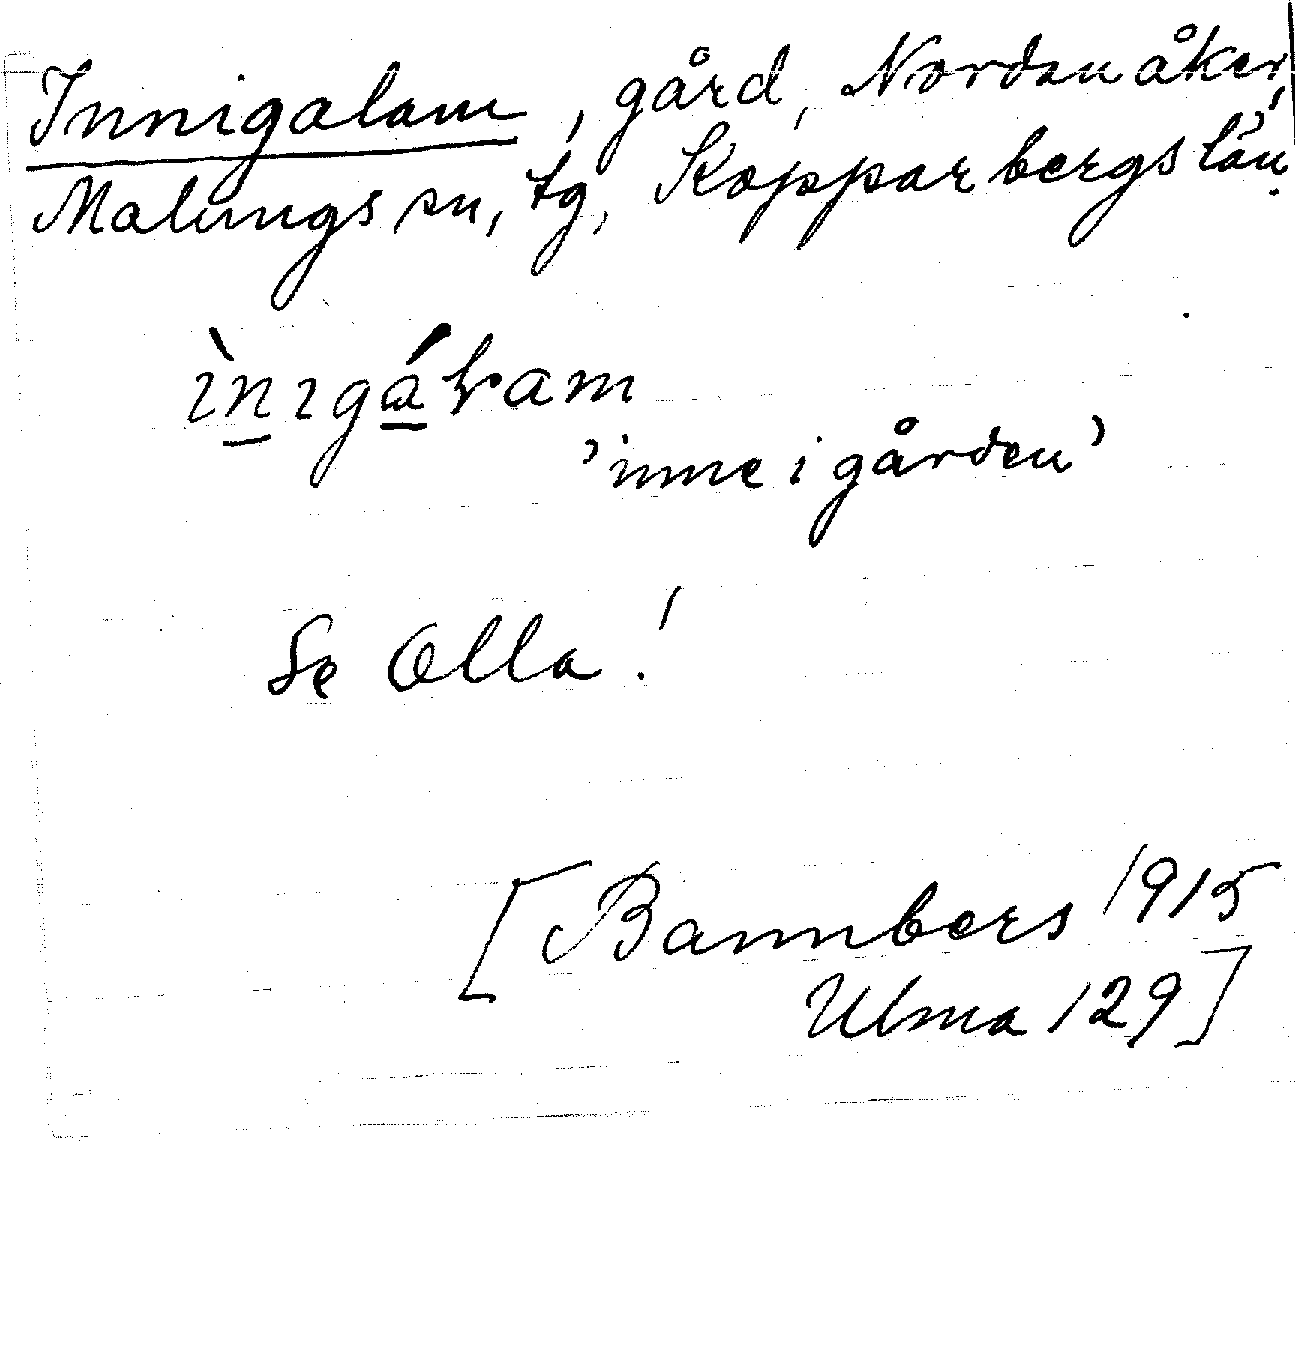 Innigalam, gård, Nordanåker,
Malungs sn, tg, Kopparbergs län.
'inne i gården'
Se Olla!
[Bannbers 1915
Ulma 129]